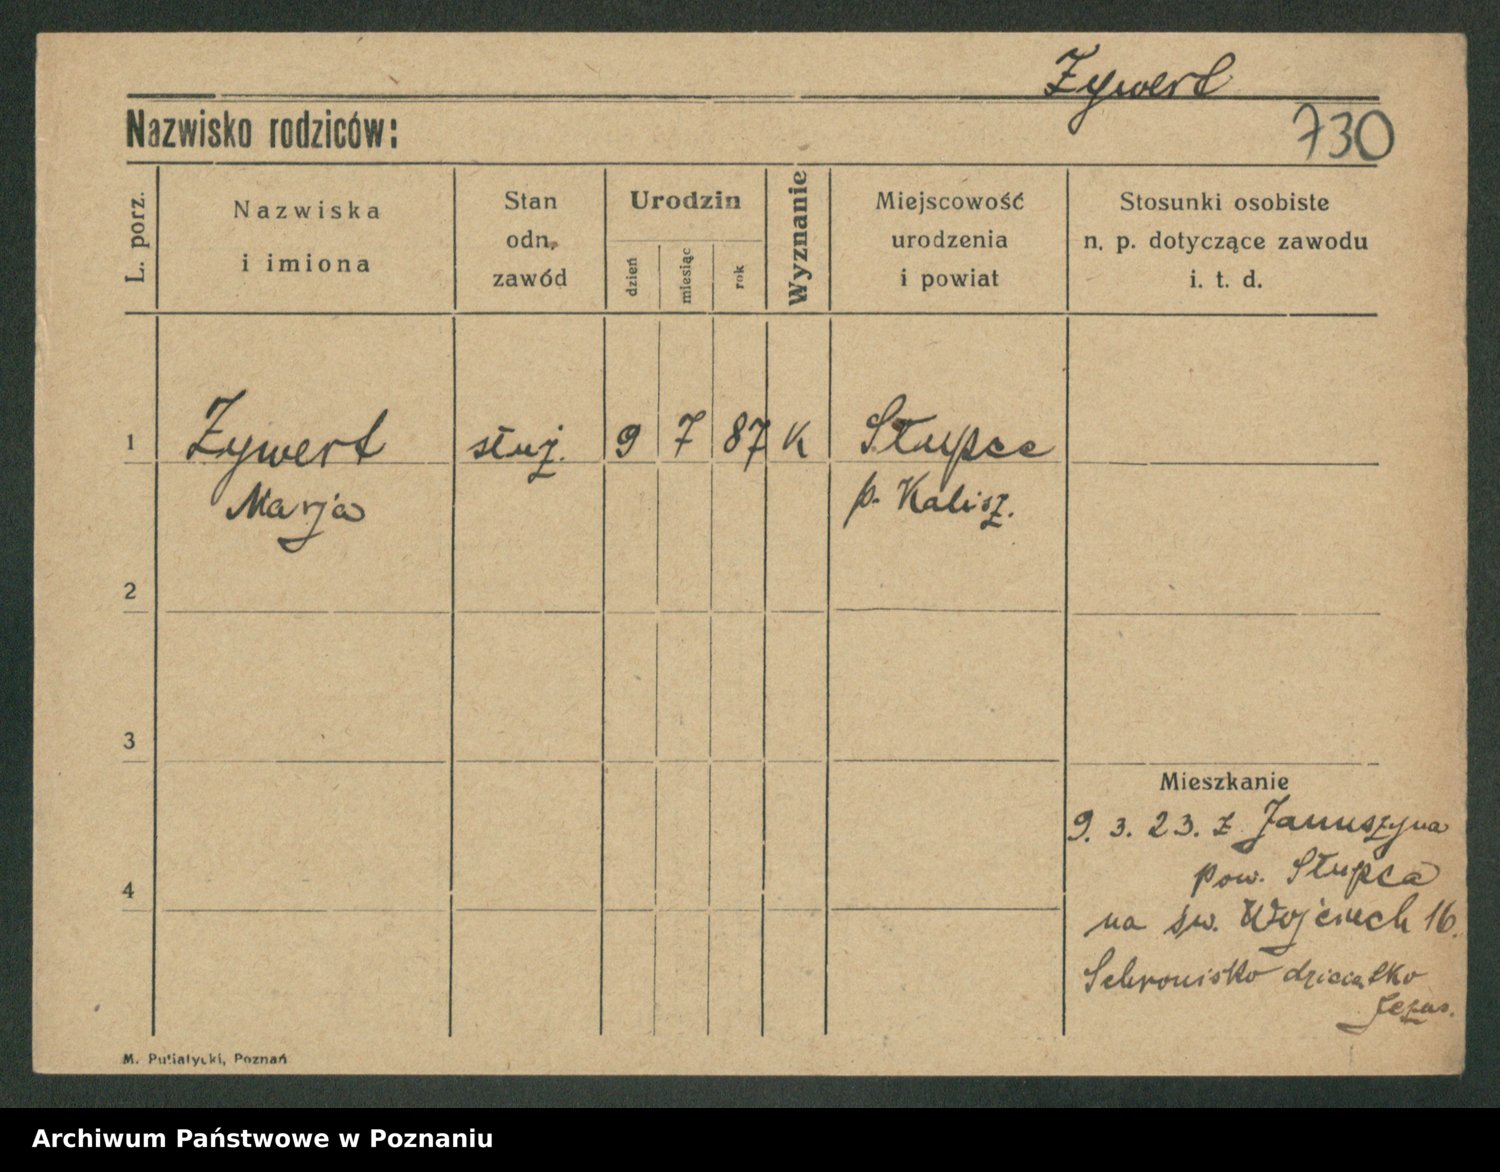 Zywert
Nazwisko rodziców:
730
L. porz.
Nazwiska
i imiona
Stan
odn.
zawód
Urodzin
dzień
miesiąc
rok
Wyznanie
Miejscowość
urodzenia
i powiat
Stosunki osobiste
n. p. dotyczące zawodu
i. t. d.
1 Zywert służ. 9 7 87 K Słupca
Marja p. Kalisz.
2
3
Mieszkanie
9. 3. 23. z Januszyna
pow. Słupca
4
na św. Wojciech 16.
Schronisko dzieciątko
Jezus.
M. Putiatycki, Poznań
Archiwum Państwowe w Poznaniu